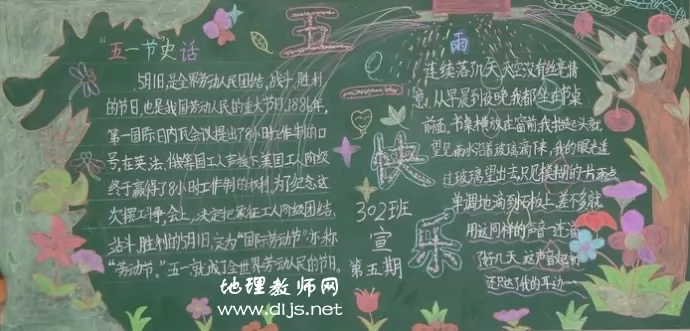 "五一节"史话
5月1日,是全世界劳动人民团结、战斗、胜利
的节日,也是我国劳动人民的重大节日。1886年,
第一国际日内瓦会议提出了8小时工作制的口
号,在英、法、俄等国工人声援下美国工人阶级
终于赢得了8小时工作制的权利。为了纪念这
次罢工斗争,会上,决定把象征工人阶级团结、
战斗、胜利的5月1日,定为"国际劳动节",亦称
"劳动节"。五一就成了全世界劳动人民的节日。
五一
快乐
302班
宣
第五期
雨
连续落几天,天空没有丝毫情
意,从早晨到夜晚,我都坐在书桌
前面,书桌横放在窗前,我抬起头就
望见雨水沿着玻璃流下来,我的眼光透
过玻璃望出去,只见模糊的一片,雨点
单调地滴到石板上,差不多就
用这同样的声音一连落
了好几天,这声音起初
还只达了我的耳边……
地理教师网
www.dljs.net